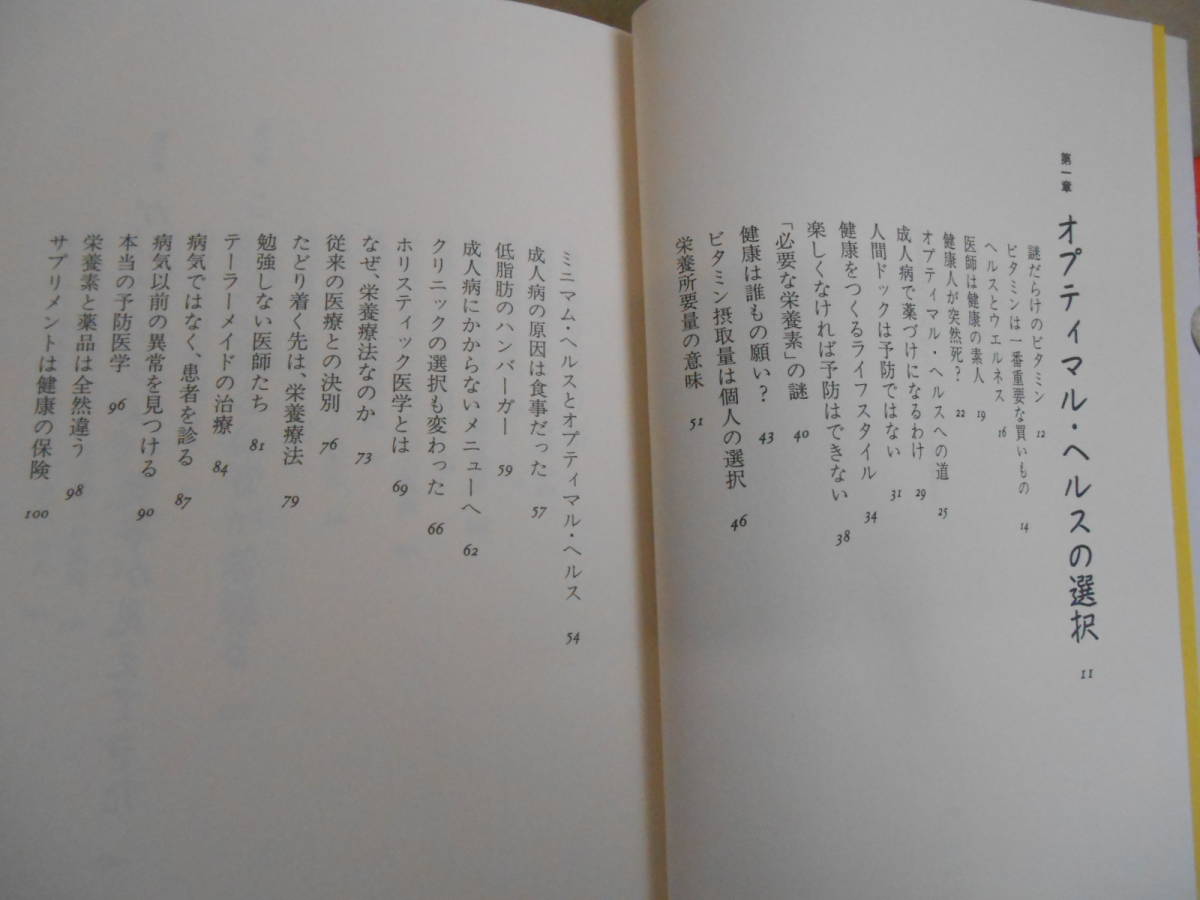 第一章 オプティマル・ヘルスの選択 11
謎だらけのビタミン 12
ビタミンは一番重要な買いもの 14
ヘルスとウエルネス 16
医師は健康の素人 19
健康人が突然死? 22
オプティマル・ヘルスへの道 25
成人病で薬づけになるわけ 29
人間ドックは予防ではない 31
健康をつくるライフスタイル 34
楽しくなければ予防はできない 38
「必要な栄養素」の謎 40
健康は誰もの願い? 43
ビタミン摂取量は個人の選択 46
栄養所要量の意味 51
ミニマム・ヘルスとオプティマル・ヘルス 54
成人病の原因は食事だった 57
低脂肪のハンバーガー 59
成人病にかからないメニューへ 62
クリニックの選択も変わった 66
ホリスティック医学とは 69
なぜ、栄養療法なのか 73
従来の医療との決別 76
たどり着く先は、栄養療法 79
勉強しない医師たち 81
テーラーメイドの治療 84
病気ではなく、患者を診る 87
病気以前の異常を見つける 90
本当の予防医学 96
栄養素と薬品は全然違う 98
サプリメントは健康の保険 100